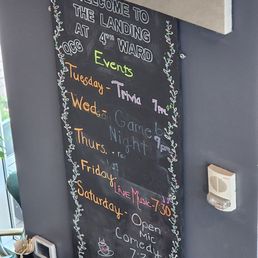 WELCOME TO
THE LANDING
AT 4TH WARD
OCB
Events
Tuesday- Trivia 7pm
Wed.- Game
Night 7pm
Thurs.-
Friday- Live Music 7:30
Saturday-
Open
Mic
Comedy